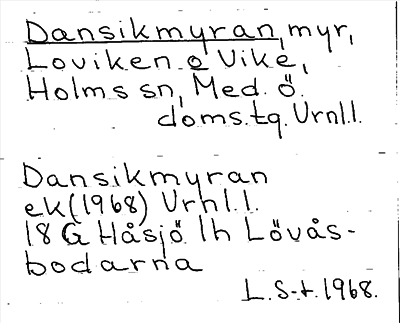 Dansikmyran, myr,
Loviken o Vike,
Holms sn, Med. ö.
doms.tg. Vrnl.l.
Dansikmyran
ek (1968) Vrnl.l.
18 G Håsjö 1h Lövås-
bodarna
L. S-t. 1968.